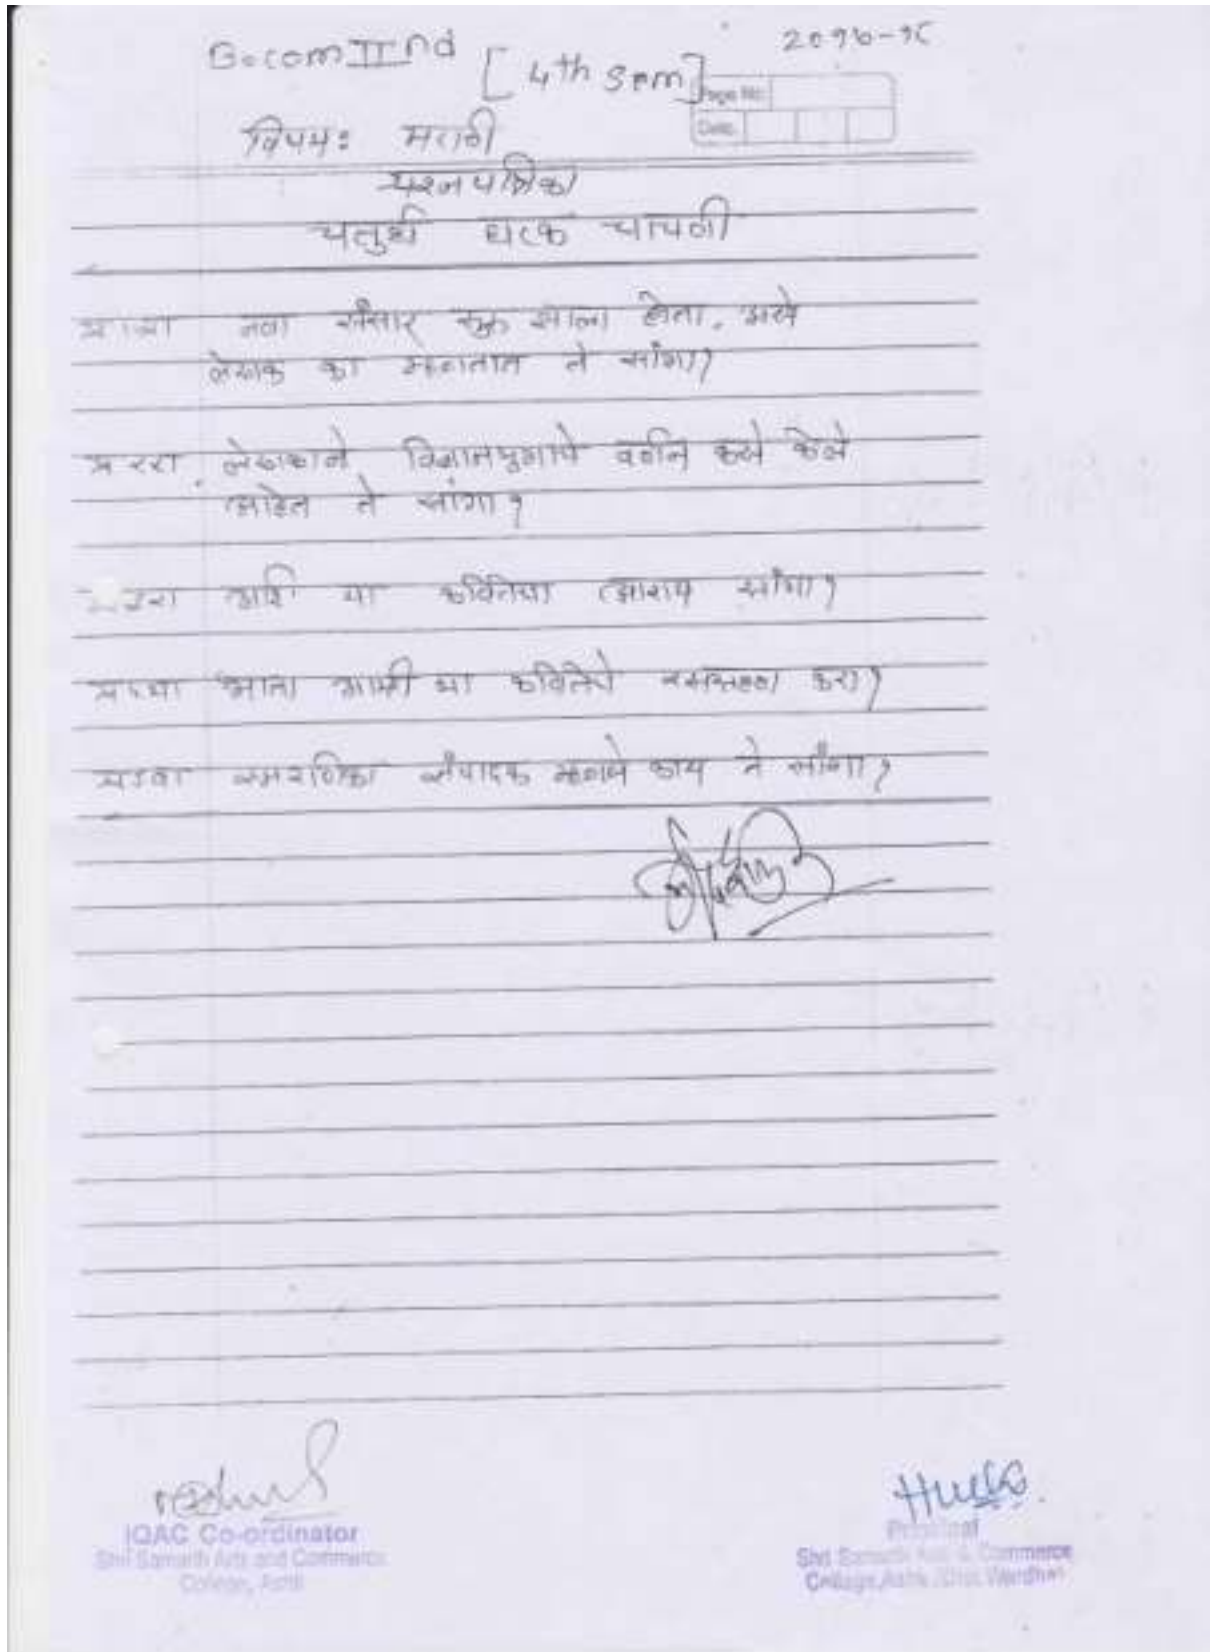 B.com IInd [4th sem] २०१७-१८
Page No:
Date:
विषय: मराठी
प्रश्नपत्रिका
चतुर्थ घटक चाचणी
नवा संसार सुरु झाला होता. असे
लेखक का म्हणतात ते सांगा?
लेखकाने विज्ञानयुगाचे वर्णन कसे केले
आहेत ते सांगा?
या कवितेचा आशय सांगा?
आता आम्ही या कवितेचे रसग्रहण करा?
स्मरणिका संपादक म्हणजे काय ते सांगा?
IQAC Co-ordinator
Shri Samarth Arts and Commerce
College, Ashti
Principal
Shri Samarth Arts & Commerce
College, Ashti (Dist. Wardha)